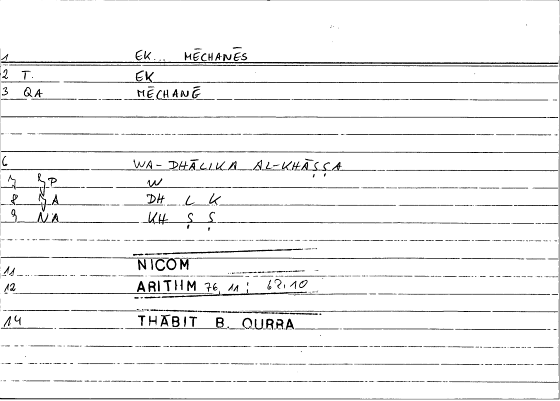 1 EK... MĒCHANĒS
2 T. EK
3 QA MĒCHANĒ
6 WA-DHĀLIKA AL-KHĀṢṢA
7 W
8 DH L K
9 NA KH Ṣ Ṣ
11 NICOM
12 ARITHM 76,11; 62,10
14 THĀBIT B. QURRA